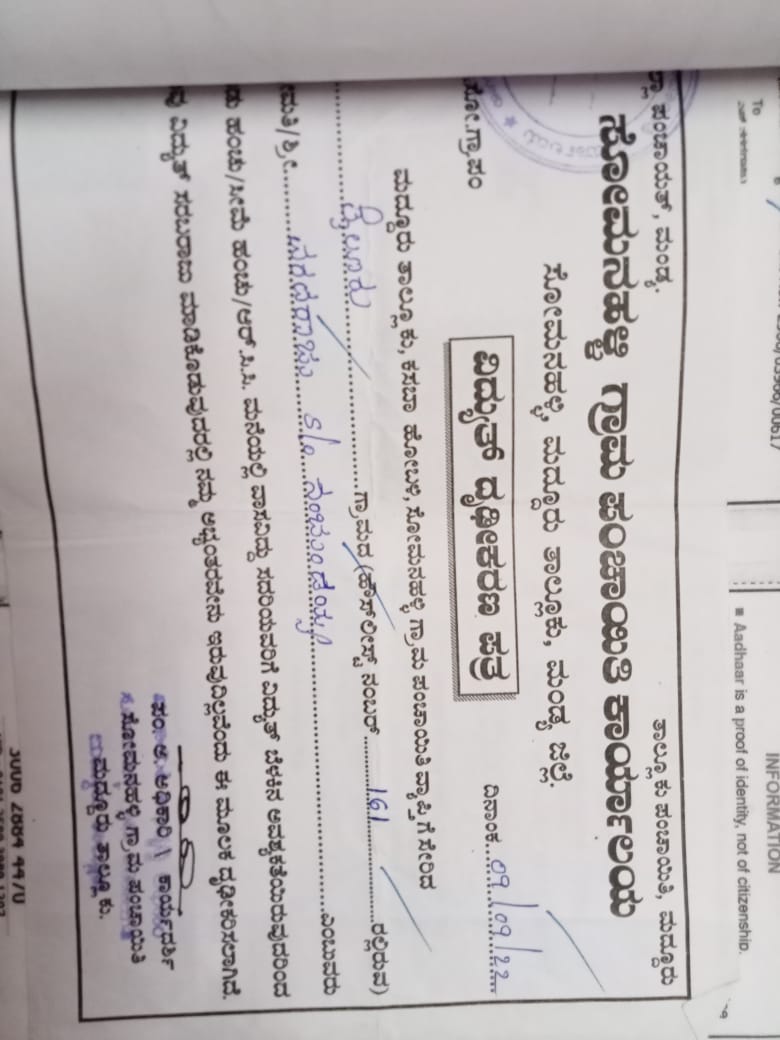 To
INFORMATION
■ Aadhaar is a proof of identity, not of citizenship.
ಪಂಚಾಯತ್, ಮಂಡ್ಯ.
ತಾಲ್ಲೂಕು ಪಂಚಾಯಿತಿ, ಮದ್ದೂರು
ಸೋಮನಹಳ್ಳಿ ಗ್ರಾಮ ಪಂಚಾಯಿತಿ ಕಾರ್ಯಾಲಯ
ಸೋಮನಹಳ್ಳಿ, ಮದ್ದೂರು ತಾಲ್ಲೂಕು, ಮಂಡ್ಯ ಜಿಲ್ಲೆ.
ಸೋ.ಗ್ರಾ.ಪಂ
ವಿದ್ಯುತ್ ದೃಢೀಕರಣ ಪತ್ರ
ದಿನಾಂಕ..09/09/22
ಮದ್ದೂರು ತಾಲ್ಲೂಕು, ಕಸಬಾ ಹೋಬಳಿ, ಸೋಮನಹಳ್ಳಿ ಗ್ರಾಮ ಪಂಚಾಯಿತಿ ವ್ಯಾಪ್ತಿಗೆ ಸೇರಿದ
ಗ್ರಾಮದ (ಹೌಸ್‌ಲೀಸ್ಟ್ ನಂಬರ್ ......161......ರಲ್ಲಿರುವ)
/ಶ್ರೀ...... ವರದರಾಜು s/o ......ಎಂಬುವರು
ಹಂಚು/ಸೀಮೆ ಹಂಚು/ಆರ್.ಸಿ.ಸಿ. ಮನೆಯಲ್ಲಿ ವಾಸವಿದ್ದು ಸದರಿಯವರಿಗೆ ವಿದ್ಯುತ್ ಬೆಳಕಿನ ಅವಶ್ಯಕತೆಯಿರುವುದರಿಂದ
ವಿದ್ಯುತ್ ಸರಬರಾಜು ಮಾಡಿಕೊಡುವುದರಲ್ಲಿ ನಮ್ಮ ಅಭ್ಯಂತರವೇನು ಇರುವುದಿಲ್ಲವೆಂದು ಈ ಮೂಲಕ ದೃಢೀಕರಿಸಲಾಗಿದೆ.
ಪಂ. ಅ. ಅಧಿಕಾರಿ \ ಕಾರ್ಯದರ್ಶಿ
ಸೋಮನಹಳ್ಳಿ ಗ್ರಾಮ ಪಂಚಾಯಿತಿ
ಮದ್ದೂರು ತಾಲ್ಲೂಕು.